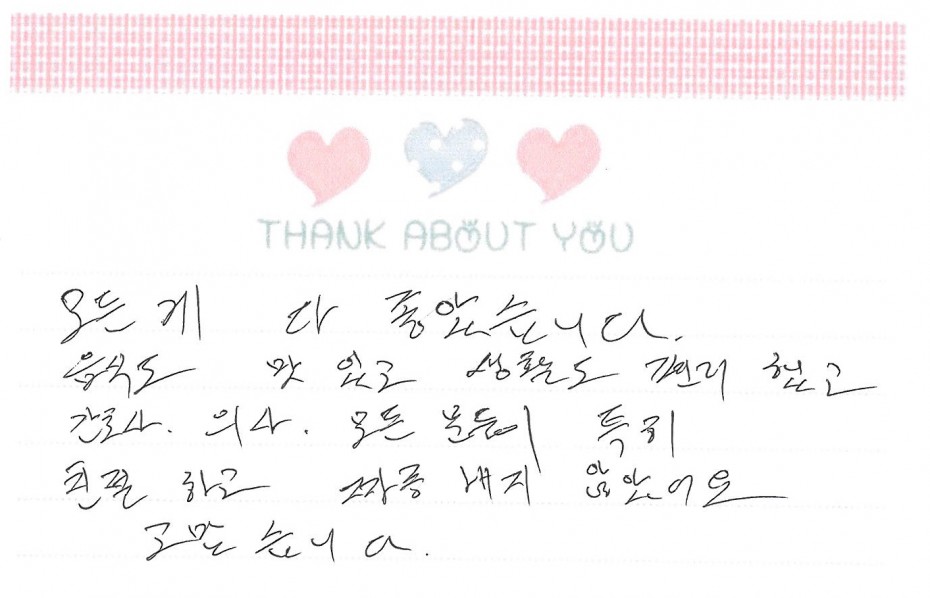 THANK ABOUT YOU
모든게 다 좋았습니다.
음식도 맛 있고 생활도 편리 했고
간호사. 의사. 모든 분들이 특히
친절 하고 짜증 내지 않았어요
고맙 습니다.